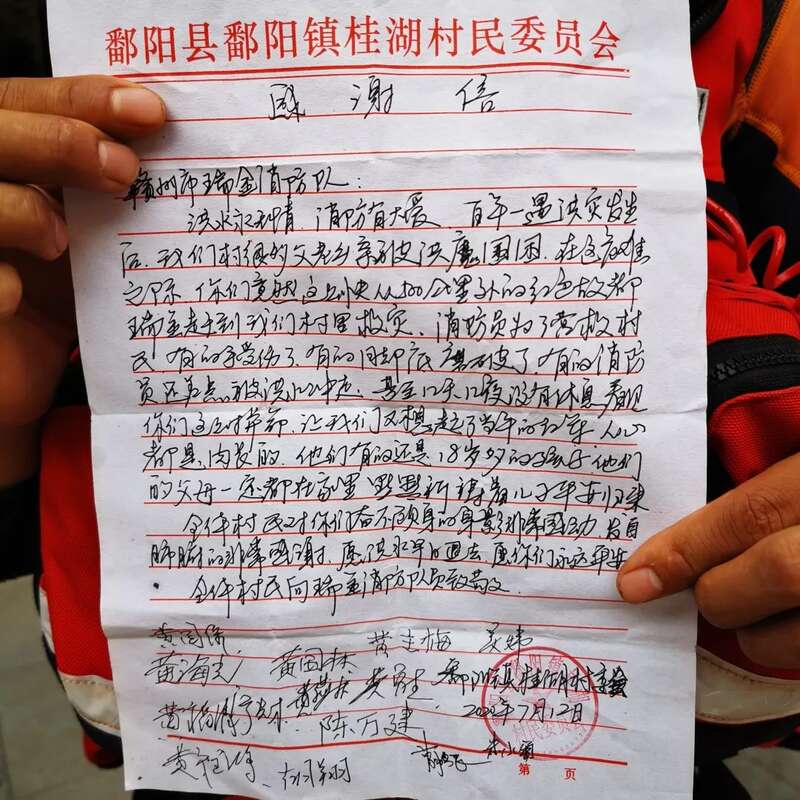 鄱阳县鄱阳镇桂湖村民委员会
感谢信
赣州市瑞金消防队：
洪水永无情，消防有大爱 百年一遇洪灾发生
后，我们村很多父老乡亲被洪魔围困，在危难
之际，你们竟然连夜从400公里外的红色故都
瑞金赶到我们村里救灾，消防员为了营救村
民，有的手受伤了，有的脚底磨破了，有的消防
员还差点被洪水冲走，甚至几天几夜没有休息，看见
你们这么拼命，让我们又想起了当年的红军，人心
都是肉长的，他们有的还是18岁多的孩子，他们
的父母一定都在家里默默祈祷着儿子平安归来
全体村民对你们奋不顾身的身影非常感动，发自
肺腑的非常感谢，愿洪水早日退去，愿你们永远平安
全体村民向瑞金消防队员致敬
黄国保 黄志梅
黄海 黄国林
鄱阳镇桂湖村委会
陈万建 2020年7月12日
胡翔
村民委员会
第 页